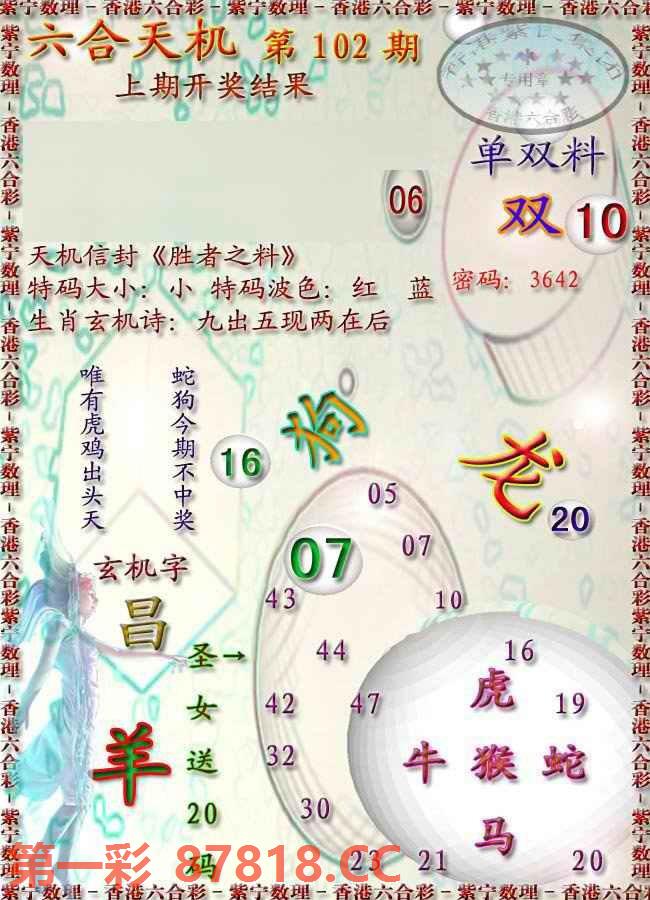 紫宁数理－香港六合彩－紫宁数理－香港六合彩－紫宁数理－香港六合彩
六合天机 第 102 期
上期开奖结果
专用章
香港六合彩
单双料
双 10
06
天机信封《胜者之料》
特码大小：小 特码波色：红 蓝
密码：3642
生肖玄机诗：九出五现两在后
蛇狗今期不中奖
唯有虎鸡出头天
16
狗
龙
20
05
07
07
玄机字
昌
43
10
圣→
女
送
20
码
羊
44
16
虎
42
47
19
牛 猴 蛇
32
马
30
23
21
20
第一彩 87818.CC
紫宁数理－香港六合彩－紫宁数理－香港六合彩－紫宁数理－香港六合彩